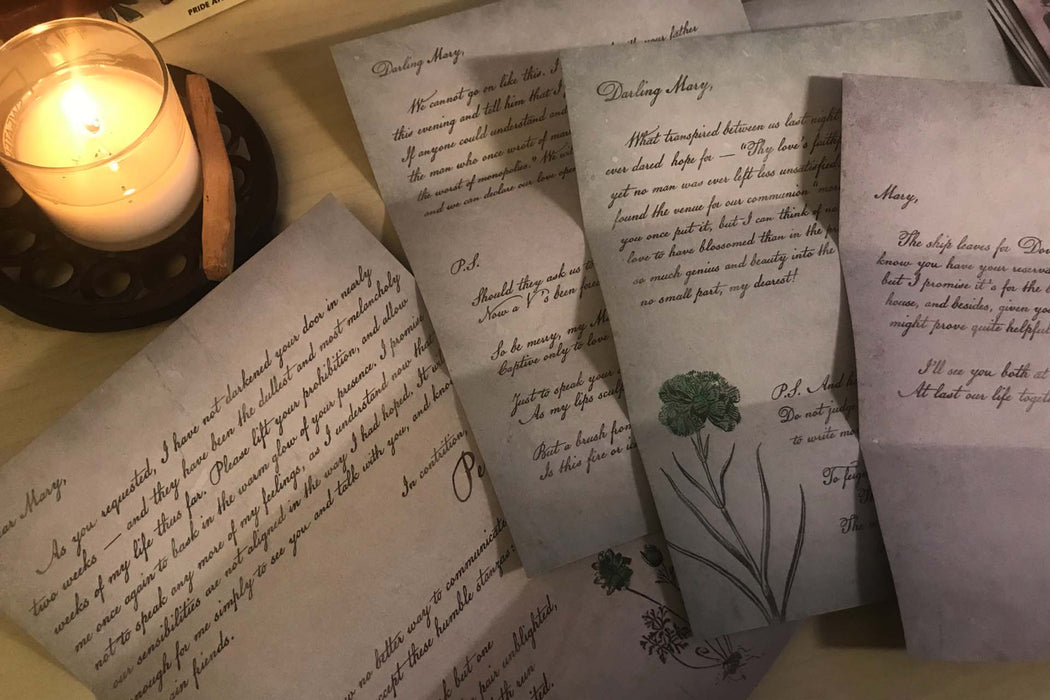 PRIDE AN
Darling Mary,
We cannot go on like this. I
your father
this evening and tell him that I
If anyone could understand and
the man who once wrote of
the worst of monopolies." We
and we can declare our love
P.S.
Should they ask us to
Now a V's been
So be merry, my
Captive only to love
Just to speak your
As my lips
But a brush from
Is this fire or
Darling Mary,
What transpired between us last night
ever dared hope for — "Thy love's
yet no man was ever left less unsatisfied
found the venue for our communion
you once put it, but I can think of no
love to have blossomed than in the
so much genius and beauty into the
no small part, my dearest!
P.S. And
Do not judge
to write
To
The
Mary,
The ship leaves for
know you have your
but I promise it's for the
house, and besides, given you
might prove quite helpful
I'll see you both at
At last our life
ear Mary,
As you requested, I have not darkened your door in nearly
two weeks — and they have been the dullest and most melancholy
weeks of my life thus far. Please lift your prohibition, and allow
me once again to bask in the warm glow of your presence. I promise
not to speak any more of my feelings, as I understand now that
our sensibilities are not aligned in the way I had hoped. It
enough for me simply to see you and talk with you, and
ain friends.
In contrition,
Pe
no better way to communicate
cept these humble
but one
pair unblighted,
run